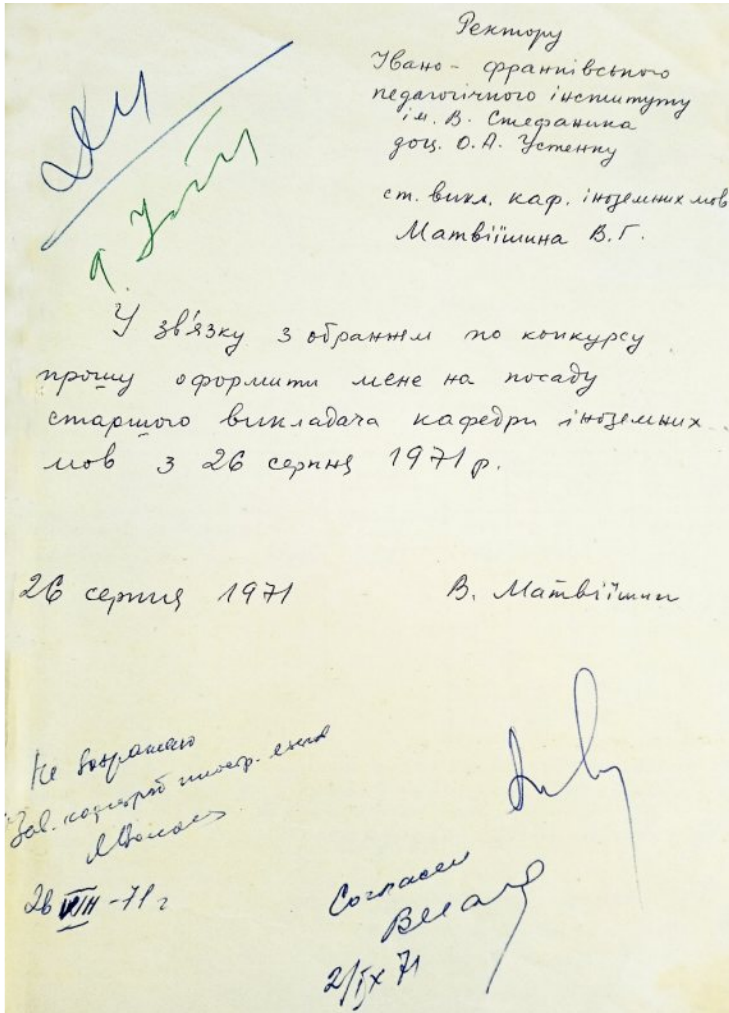 Ректору
Івано-франківського
педагогічного інституту
ім. В. Стефаника
доц. О.А. Устенку
ст. викл. каф. іноземних мов
Матвіїшина В.Г.
У зв'язку з обранням по конкурсу
прошу оформити мене на посаду
старшого викладача кафедри іноземних
мов з 26 серпня 1971 р.
26 серпня 1971 В. Матвіїшин
Не возражаю
Зав. кафедрой иностр.
26 VIII-71 г
Согласен
2/IX 71